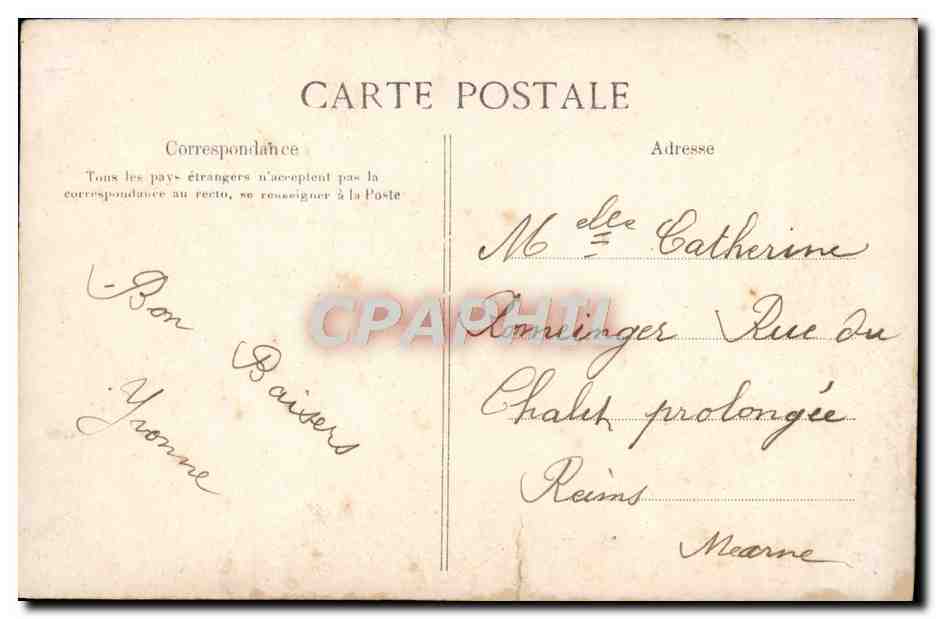 CARTE POSTALE
Correspondance
Tous les pays étrangers n'acceptent pas la
correspondance au recto, se renseigner à la Poste
Bon
Baisers
Yvonne
Adresse
Melle Catherine
Romeinger Rue du
Chalet prolongée
Reims
Marne
CPAPHIL